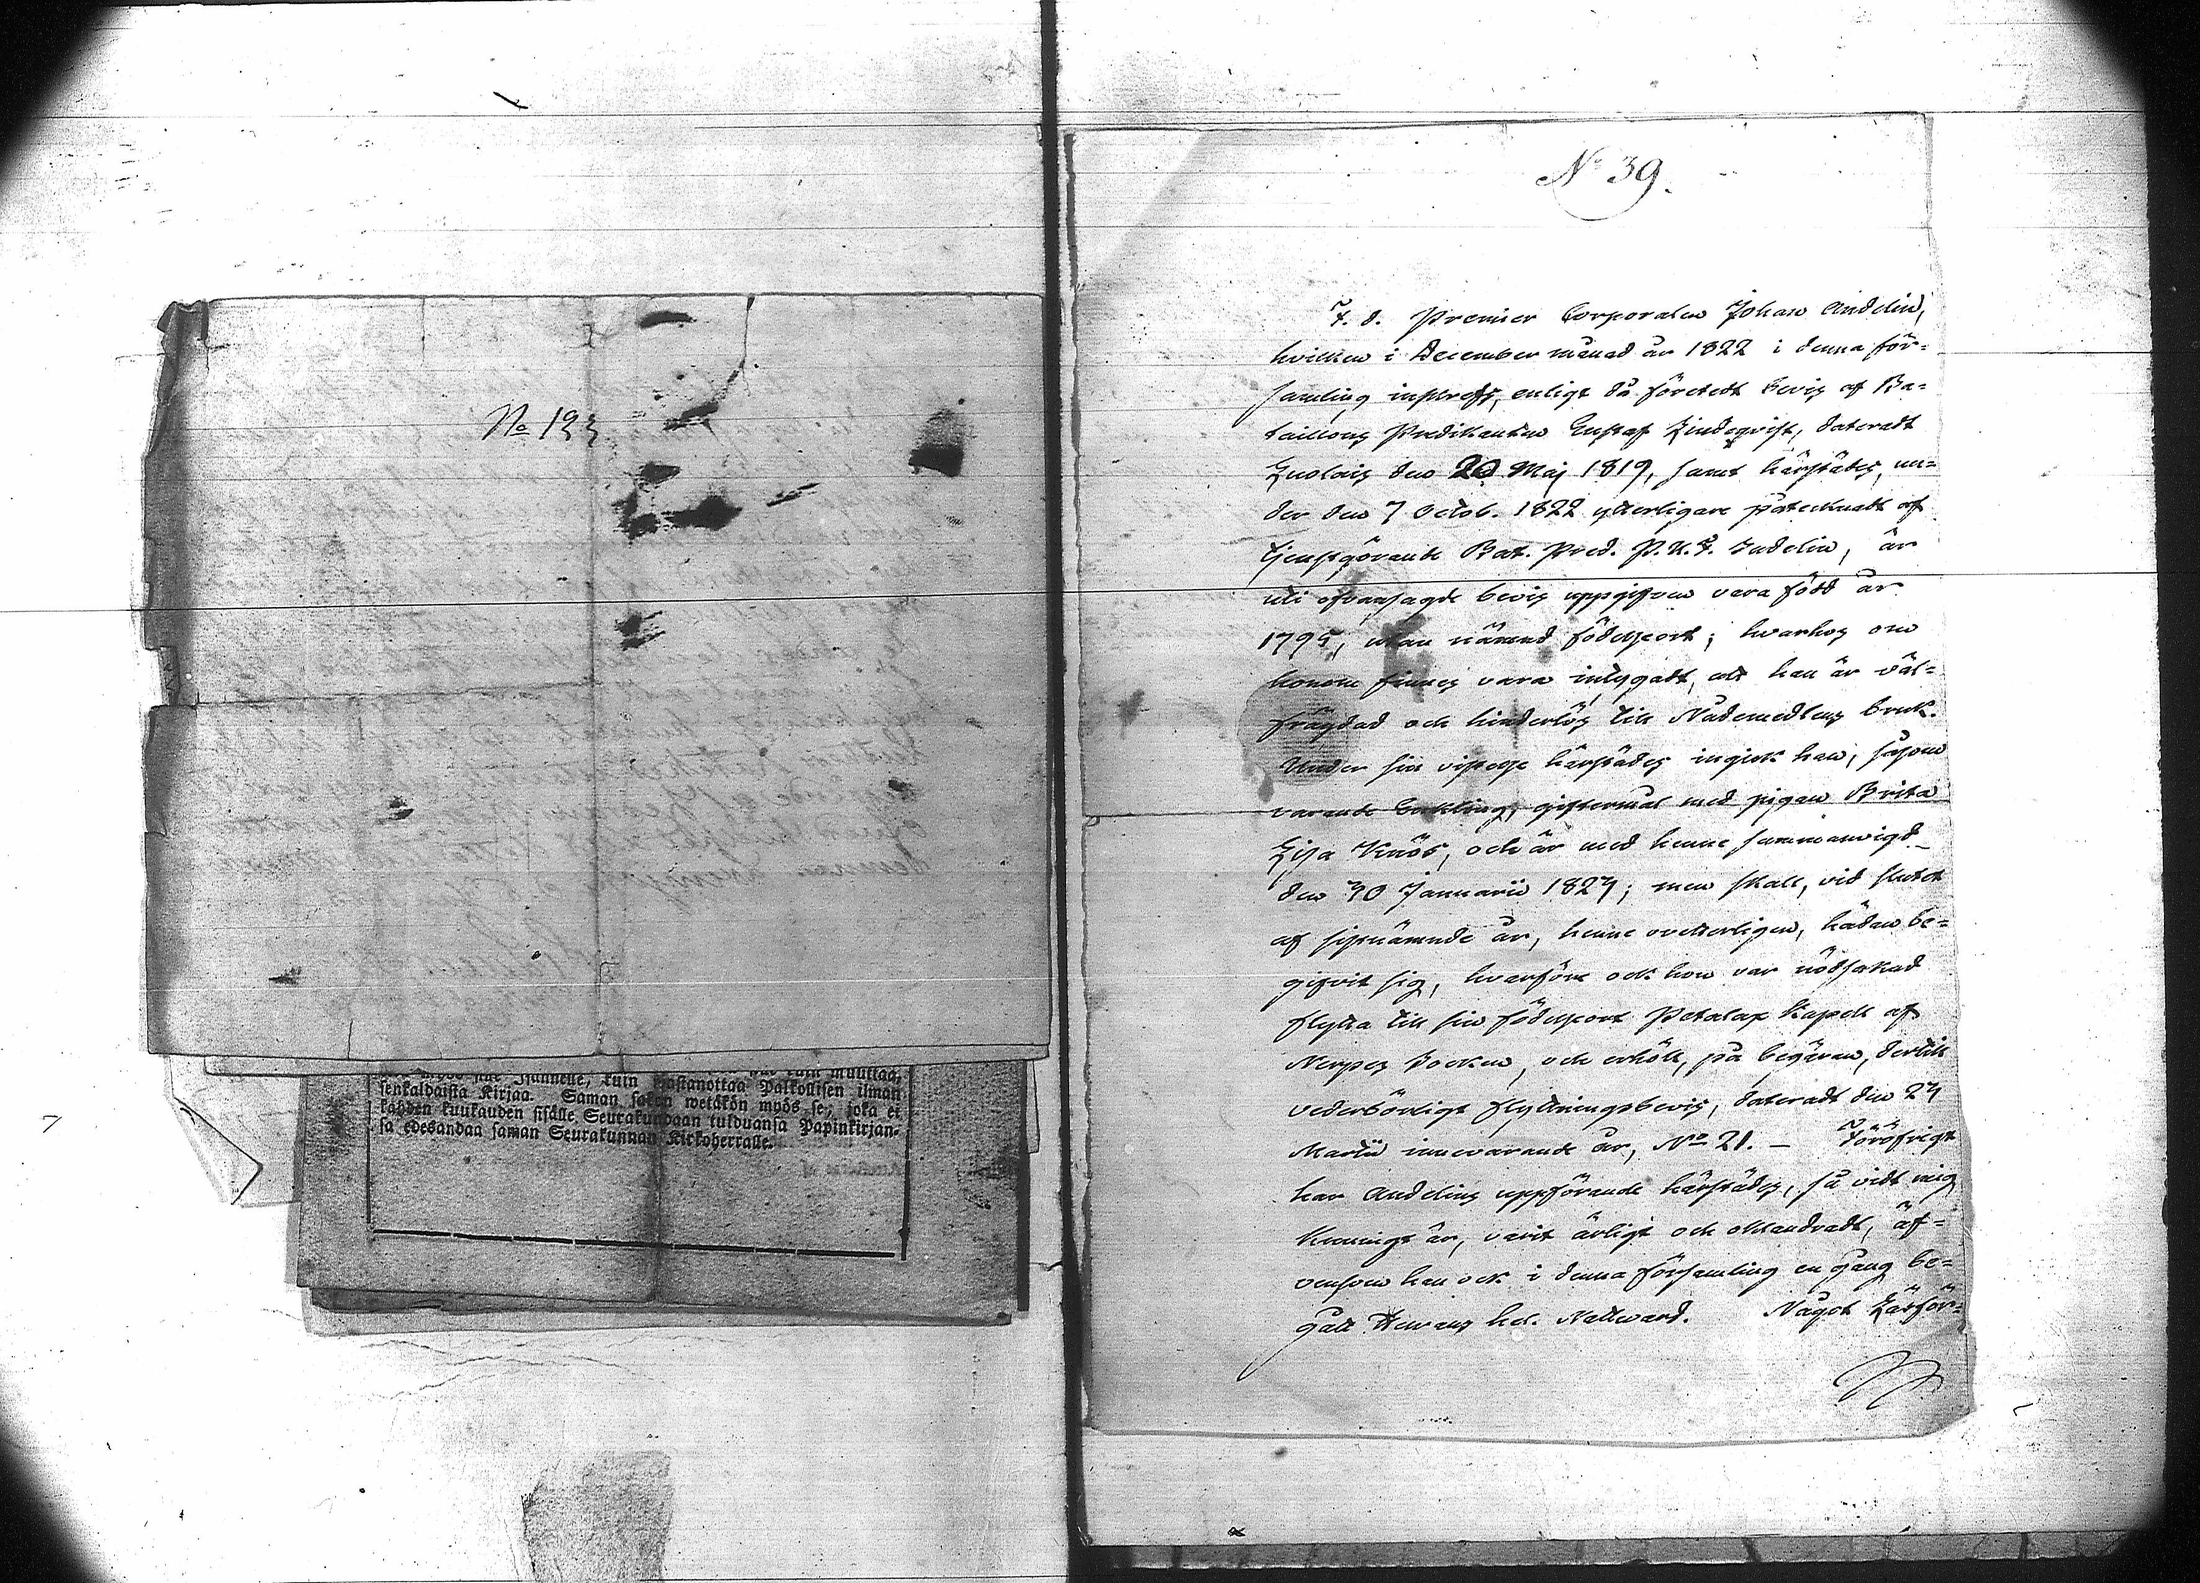 No 123
senkaldaista Kirjaa. Saman saken wetäkön myös se, joka ei
kahden kuukauden sisälle Seurakundaan tulduansa Papinkirjan-
sa edesandaa saman Seurakunnan Kirkoherralle.
No 39.
F. d. Premier Corporalen Johan Andelin,
hvilken i December månad år 1822 i denna för-
samling inträfft, enligt då företedt bevis af Ba-
taillons Predikanten Gustaf Lindeqvist, dateradt
den 20 Maj 1819, samt härstädes, un-
der den 7 Octob. 1822 ytterligare påtecknadt af
tjenstgörande Bat. Pred. P. U. F. Sadelin, är
uti ofvansagde bevis uppgifven vara född år
1795, utan nämnd födelseort; hvarhos om
honom finnes vara intygadt, att han är väl-
frägdad och hinderlös till Nådemedlens bruk.
Under sin vistelse härstädes ingick han, såsom
varande Enkling, giftermål med pigan Brita
Lisa Knös, och är med henne sammanvigd
den 30 Januarii 1823; men skall, vid slutet
af sistnämnde år, henne ovetterligen, hädan be-
gifvit sig, hvarföre ock hon var nödsakad
flytta till sin födelseort Petalax Kapell af
Nerpes Socken, och erhöll, på begäran, dertill
vederbörligt flyttningsbevis, dateradt den 23
Martii innevarande år, No 21. – Föröfrigt
har Andelins uppförande härstädes, så vidt mig
kunnigt är, varit ärligt och oklandradt, äf-
vensom han ock i denna församling en gång be-
gått Herrans hel. Nattward. Något Läsför-